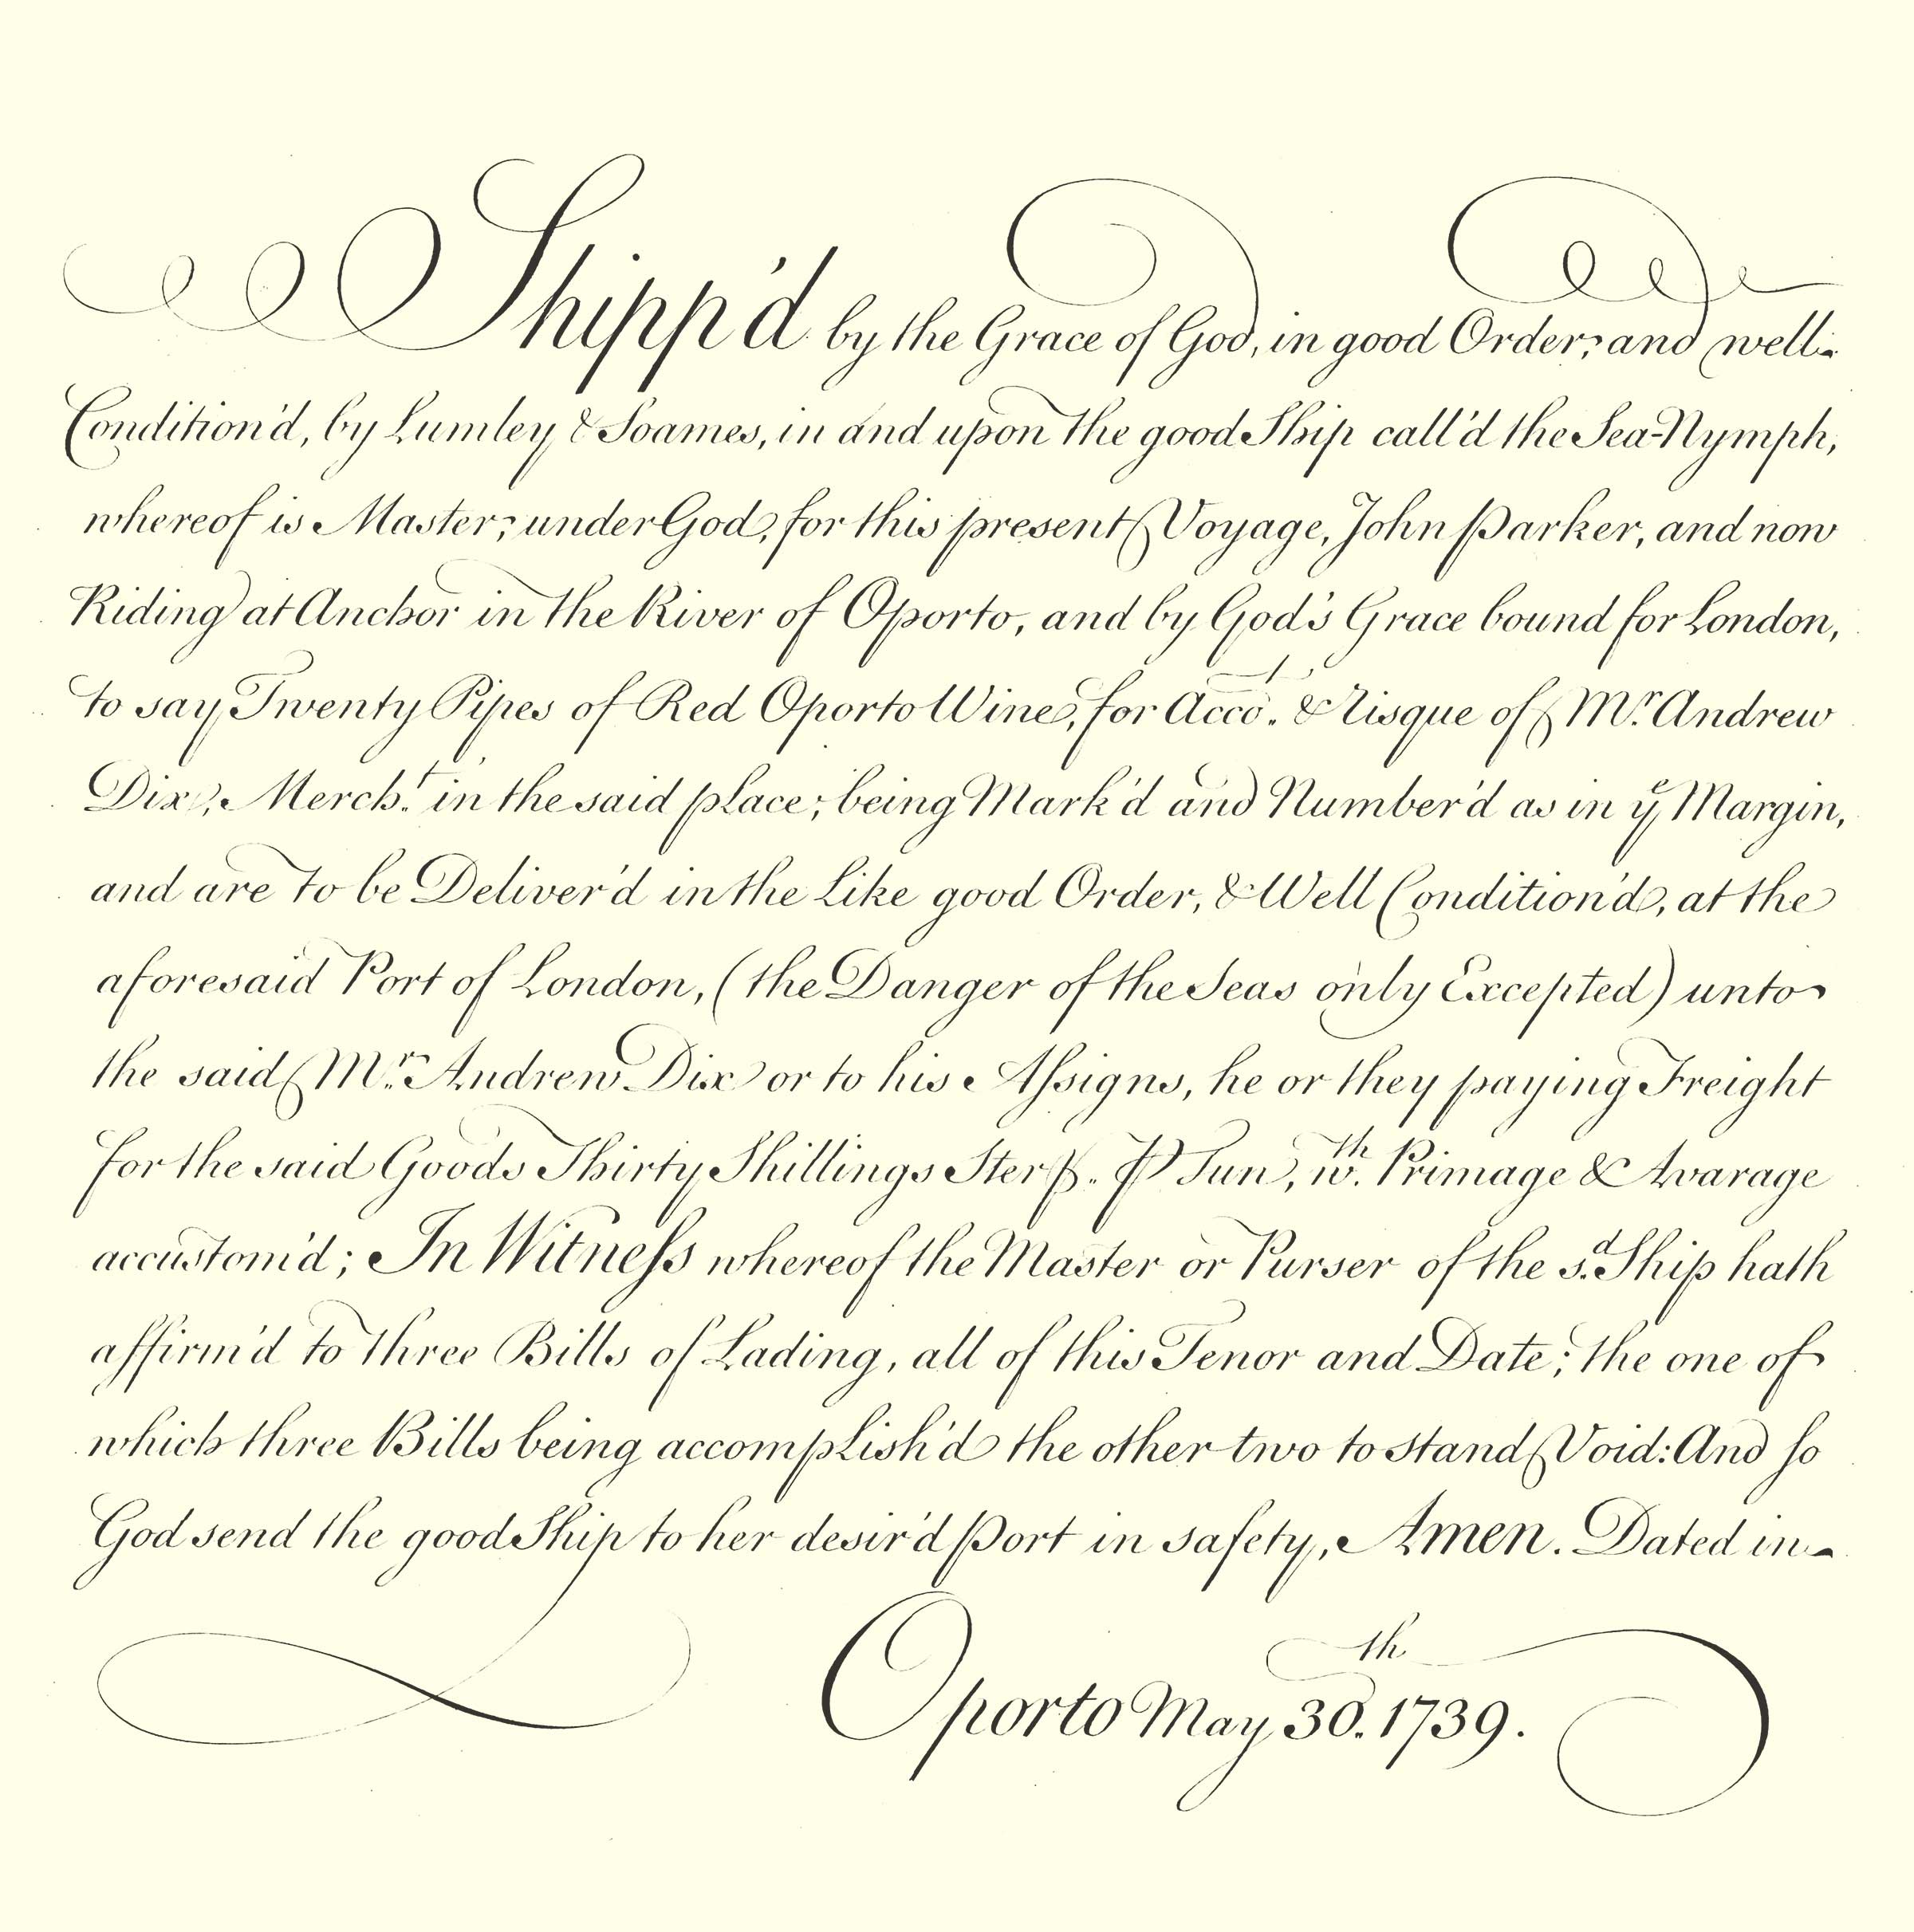 Shipp'd by the Grace of God, in good Order, and well-
Condition'd, by Lumley & Soames, in and upon the good Ship call'd the Sea-Nymph,
whereof is Master, under God, for this present Voyage, John Parker, and now
Riding at Anchor in the River of Oporto, and by God's Grace bound for London,
to say, Twenty Pipes of Red Oporto Wine, for Acco.ᵗ & risque of Mʳ. Andrew
Dix, Merch.ᵗ in the said place; being Mark'd and Number'd as in yᵉ Margin,
and are to be Deliver'd in the Like good Order, & Well Condition'd, at the
aforesaid Port of London, (the Danger of the Seas only Excepted) unto
the said Mʳ. Andrew Dix or to his Aſsigns, he or they paying Freight
for the said Goods Thirty Shillings Ster ꝑ Tun, wᵗʰ. Primage & Avarage
accustom'd; In Witneſs whereof the Master or Purser of the s.ᵈ Ship hath
affirm'd to three Bills of Lading, all of this Tenor and Date; the one of
which three Bills being accomplish'd the other two to stand Void: And ſo
God send the good Ship to her desir'd Port in safety, Amen. Dated in-
Oporto May 30.ᵗʰ 1739.